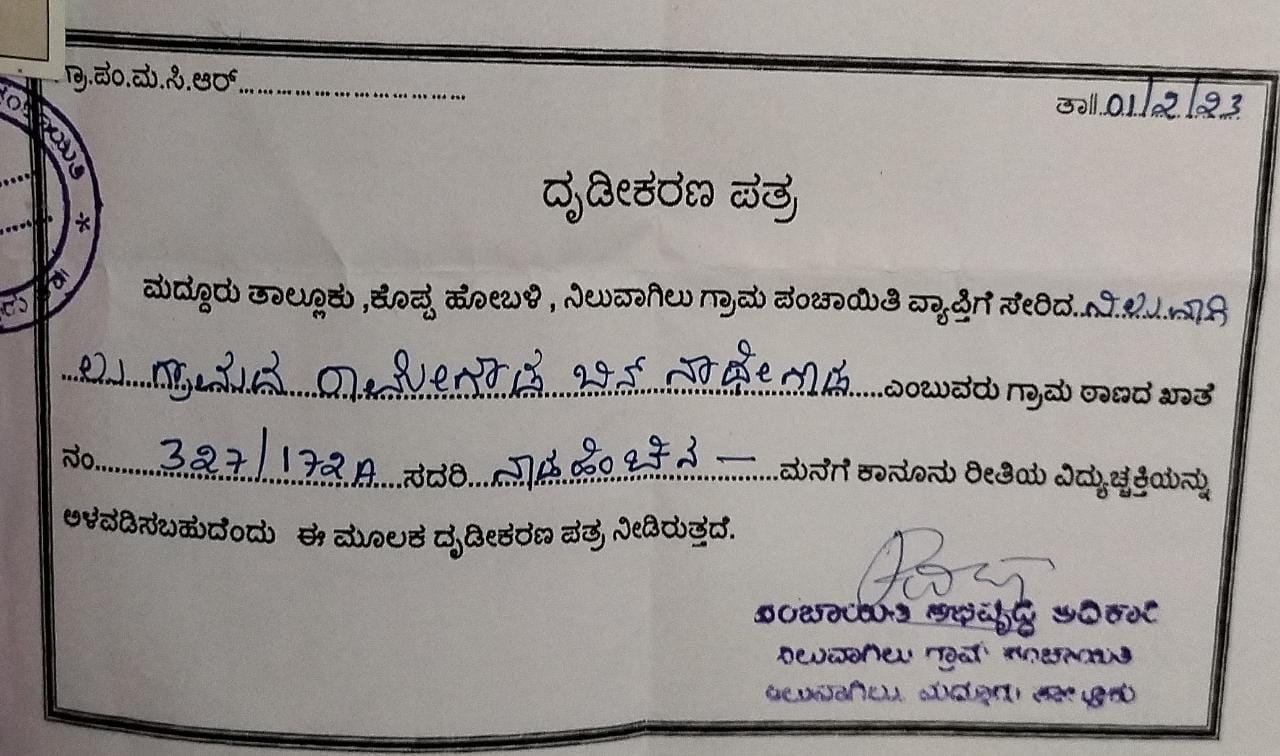 ಗ್ರಾ.ಪಂ.ಮ.ಸಿ.ಆರ್..............................
ತಾ॥.01/2/23
ದೃಡೀಕರಣ ಪತ್ರ
ಮದ್ದೂರು ತಾಲ್ಲೂಕು ,ಕೊಪ್ಪ ಹೋಬಳಿ , ನಿಲುವಾಗಿಲು ಗ್ರಾಮ ಪಂಚಾಯಿತಿ ವ್ಯಾಪ್ತಿಗೆ ಸೇರಿದ..ನಿಲುವಾಗಿ
ಲು ಗ್ರಾಮದ ರಾಮೇಗೌಡ ಬಿನ್ ನಾಥೇಗೌಡ ......ಎಂಬುವರು ಗ್ರಾಮ ಠಾಣದ ಖಾತೆ
ನಂ..........327/172A ....ಸದರಿ....ನಾಡಹೆಂಚಿನ —......ಮನೆಗೆ ಕಾನೂನು ರೀತಿಯ ವಿದ್ಯುಚ್ಚಕ್ತಿಯನ್ನು
ಅಳವಡಿಸಬಹುದೆಂದು ಈ ಮೂಲಕ ದೃಡೀಕರಣ ಪತ್ರ ನೀಡಿರುತ್ತದೆ.
ಪಂಚಾಯಿತಿ ಅಭಿವೃದ್ಧಿ ಅಧಿಕಾರಿ
ನಿಲುವಾಗಿಲು ಗ್ರಾಮ ಪಂಚಾಯಿತಿ
ನಿಲುವಾಗಿಲು, ಮದ್ದೂರು ತಾಲ್ಲೂಕು